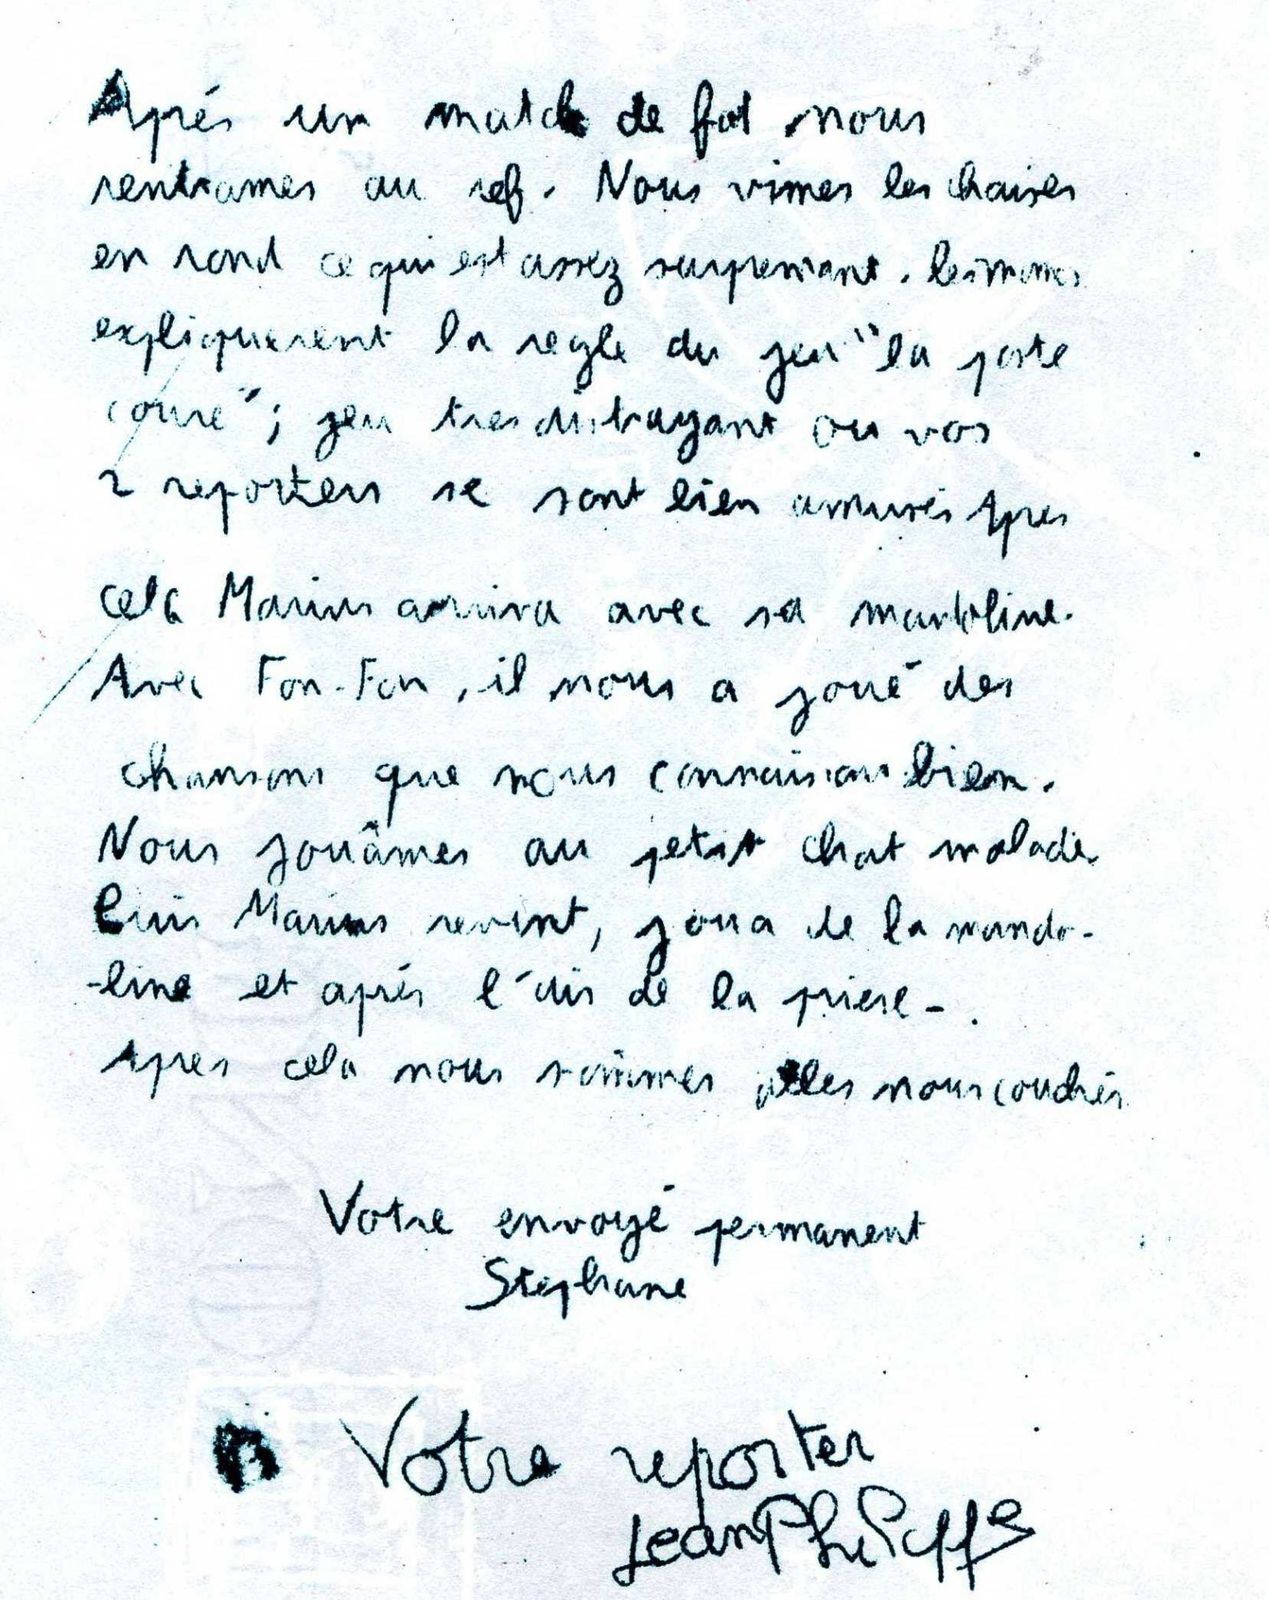 Aprés un match de fot nous
rentrames au ref. Nous vimes les chaises
en rond ce qui est assez surprenant. les monos
expliquerent la regle du jeu "la poste
coure"; jeu tres distrayant ou vos
2 reporters se sont bien amusés Apres
cela Marius arriva avec sa mandoline.
Avec Fon-Fon, il nous a joué des
chansons que nous connaisions bien.
Nous jouâmes au petit chat malade.
Puis Marius revint, joua de la mando-
-line et aprés l'
de la priere -.
Apres cela nous sommes alles nous couchés
Votre envoyé permanent
Stephane
Votre reporter
Jean Philippe